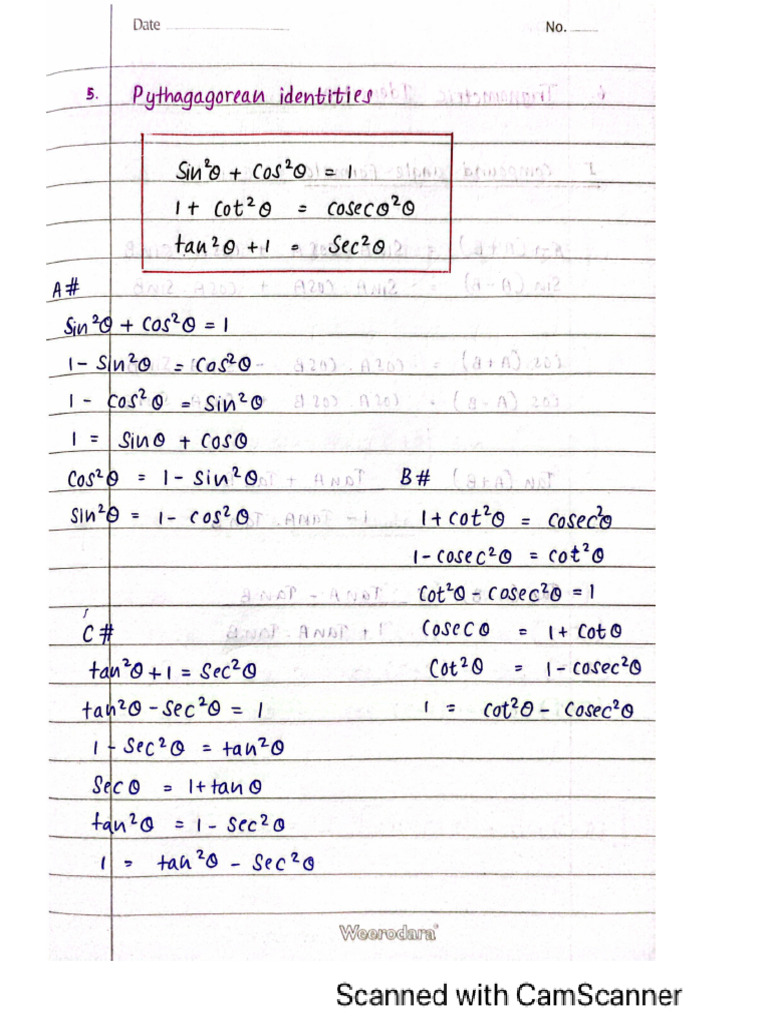 Date
No.
5. Pythagagorean identities
Sin²θ + Cos²θ = 1
1 + Cot²θ = cosecθ²θ
tan²θ + 1 = Sec²θ
A#
Sin²θ + Cos²θ = 1
1 - Sin²θ = Cos²θ
1 - Cos²θ = Sin²θ
1 = Sinθ + Cosθ
Cos²θ = 1 - Sin²θ
Sin²θ = 1 - Cos²θ
B#
1 + cot²θ = cosec²θ
1 - cosec²θ = cot²θ
Cot²θ - Cosec²θ = 1
Cosec θ = 1 + Cot θ
Cot²θ = 1 - cosec²θ
1 = cot²θ - Cosec²θ
C#
tan²θ + 1 = Sec²θ
tan²θ - Sec²θ = 1
1 - Sec²θ = tan²θ
Sec θ = 1 + tan θ
tan²θ = 1 - Sec²θ
1 = tan²θ - Sec²θ
Weerodara
Scanned with CamScanner